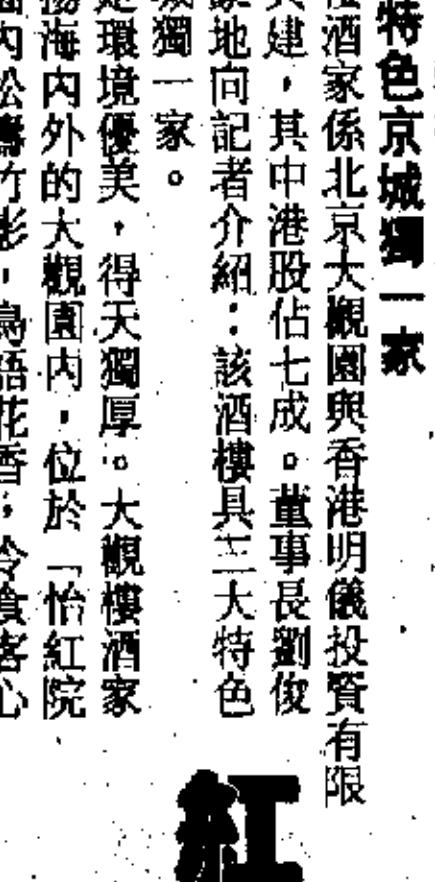 特色京城獨一家
酒家係北京大觀園與香港明儀投資有限
建，其中港股佔七成。董事長劉俊
地向記者介紹：該酒樓具三大特色
獨一家。
環境優美，得天獨厚。大觀樓酒家
海內外的大觀園內，位於「怡紅院
內松濤竹影，鳥語花香，令食客心
紅